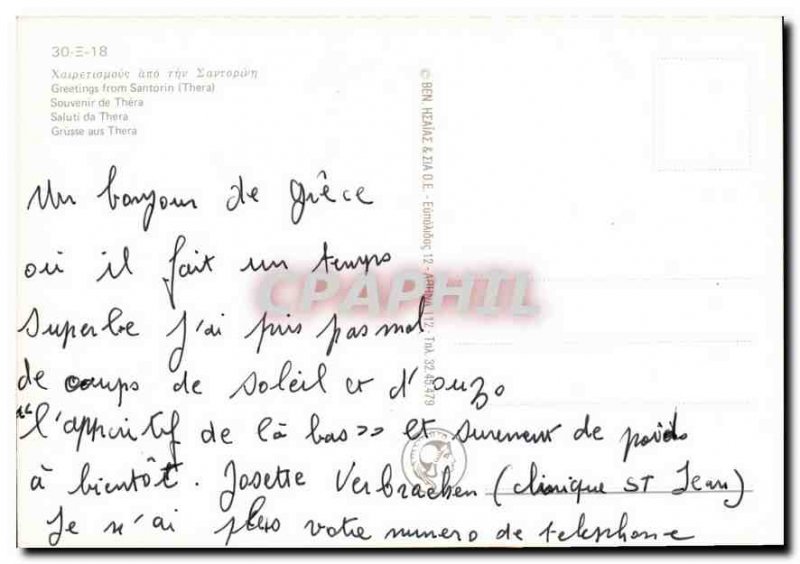 30-Ξ-18
Χαιρετισμούς ἀπό τήν Σαντορίνη
Greetings from Santorin (Thera)
Souvenir de Théra
Saluti da Thera
Grüsse aus Thera
© ΒΕΝ. ΗΣΑΪΑΣ & ΣΙΑ Ο.Ε. - Εὐπόλιδος 12 - ΑΘΗΝΑΙ 112 - Τηλ. 32.45.479
CPAPHIL
Un bonjour de Grêce
où il fait un temps
superbe j'ai pris pas mal
de coups de soleil et d'ouzo
"l'apperitif de là bas» et surement de poids
à bientôt. Josette Verbraeken (clinique ST Jean)
Je n'ai plus votre numero de telephone